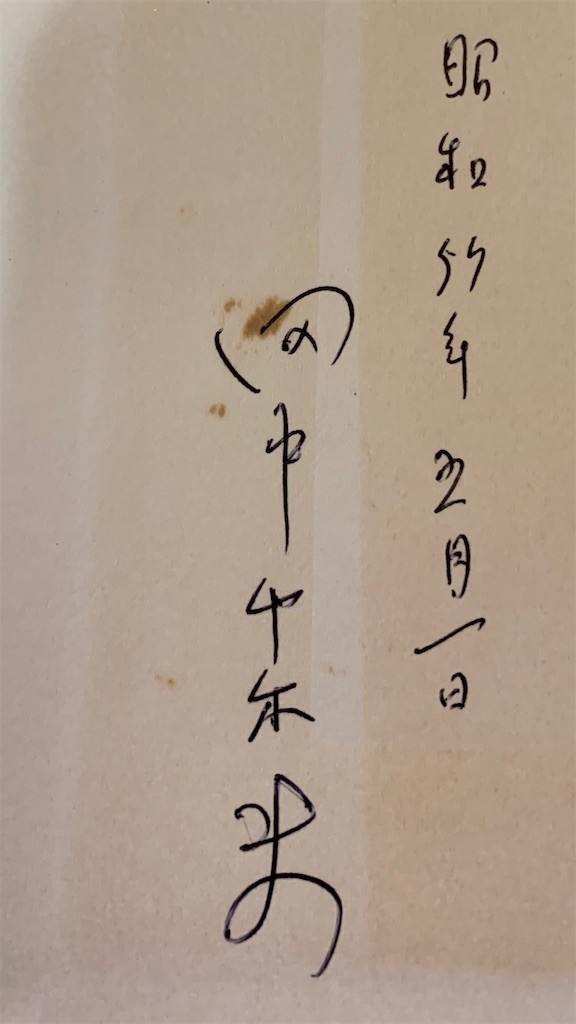 昭和55年五月一日
田中千禾夫